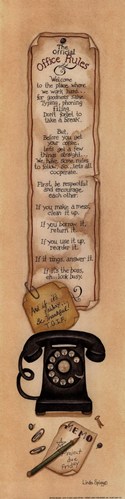 The
official
Office Rules
Welcome
to the place where
we work hard
for goodness sake.
Typing, phoning
filing
Don't forget to
take a break.
But,
Before you get
your coffee,
Let's get a few
things straight.
We have some rules
to follow, so... let's all
cooperate.
First, be respectful
and encourage,
each other.
If you make a mess,
clean it up.
If you borrow it,
return it.
If you use it up,
reorder it.
If it rings, answer it.
If it's the boss,
look busy!
And if it's
Friday,
Be thankful!
T.G.I.F.
MEMO
Linda Spivey